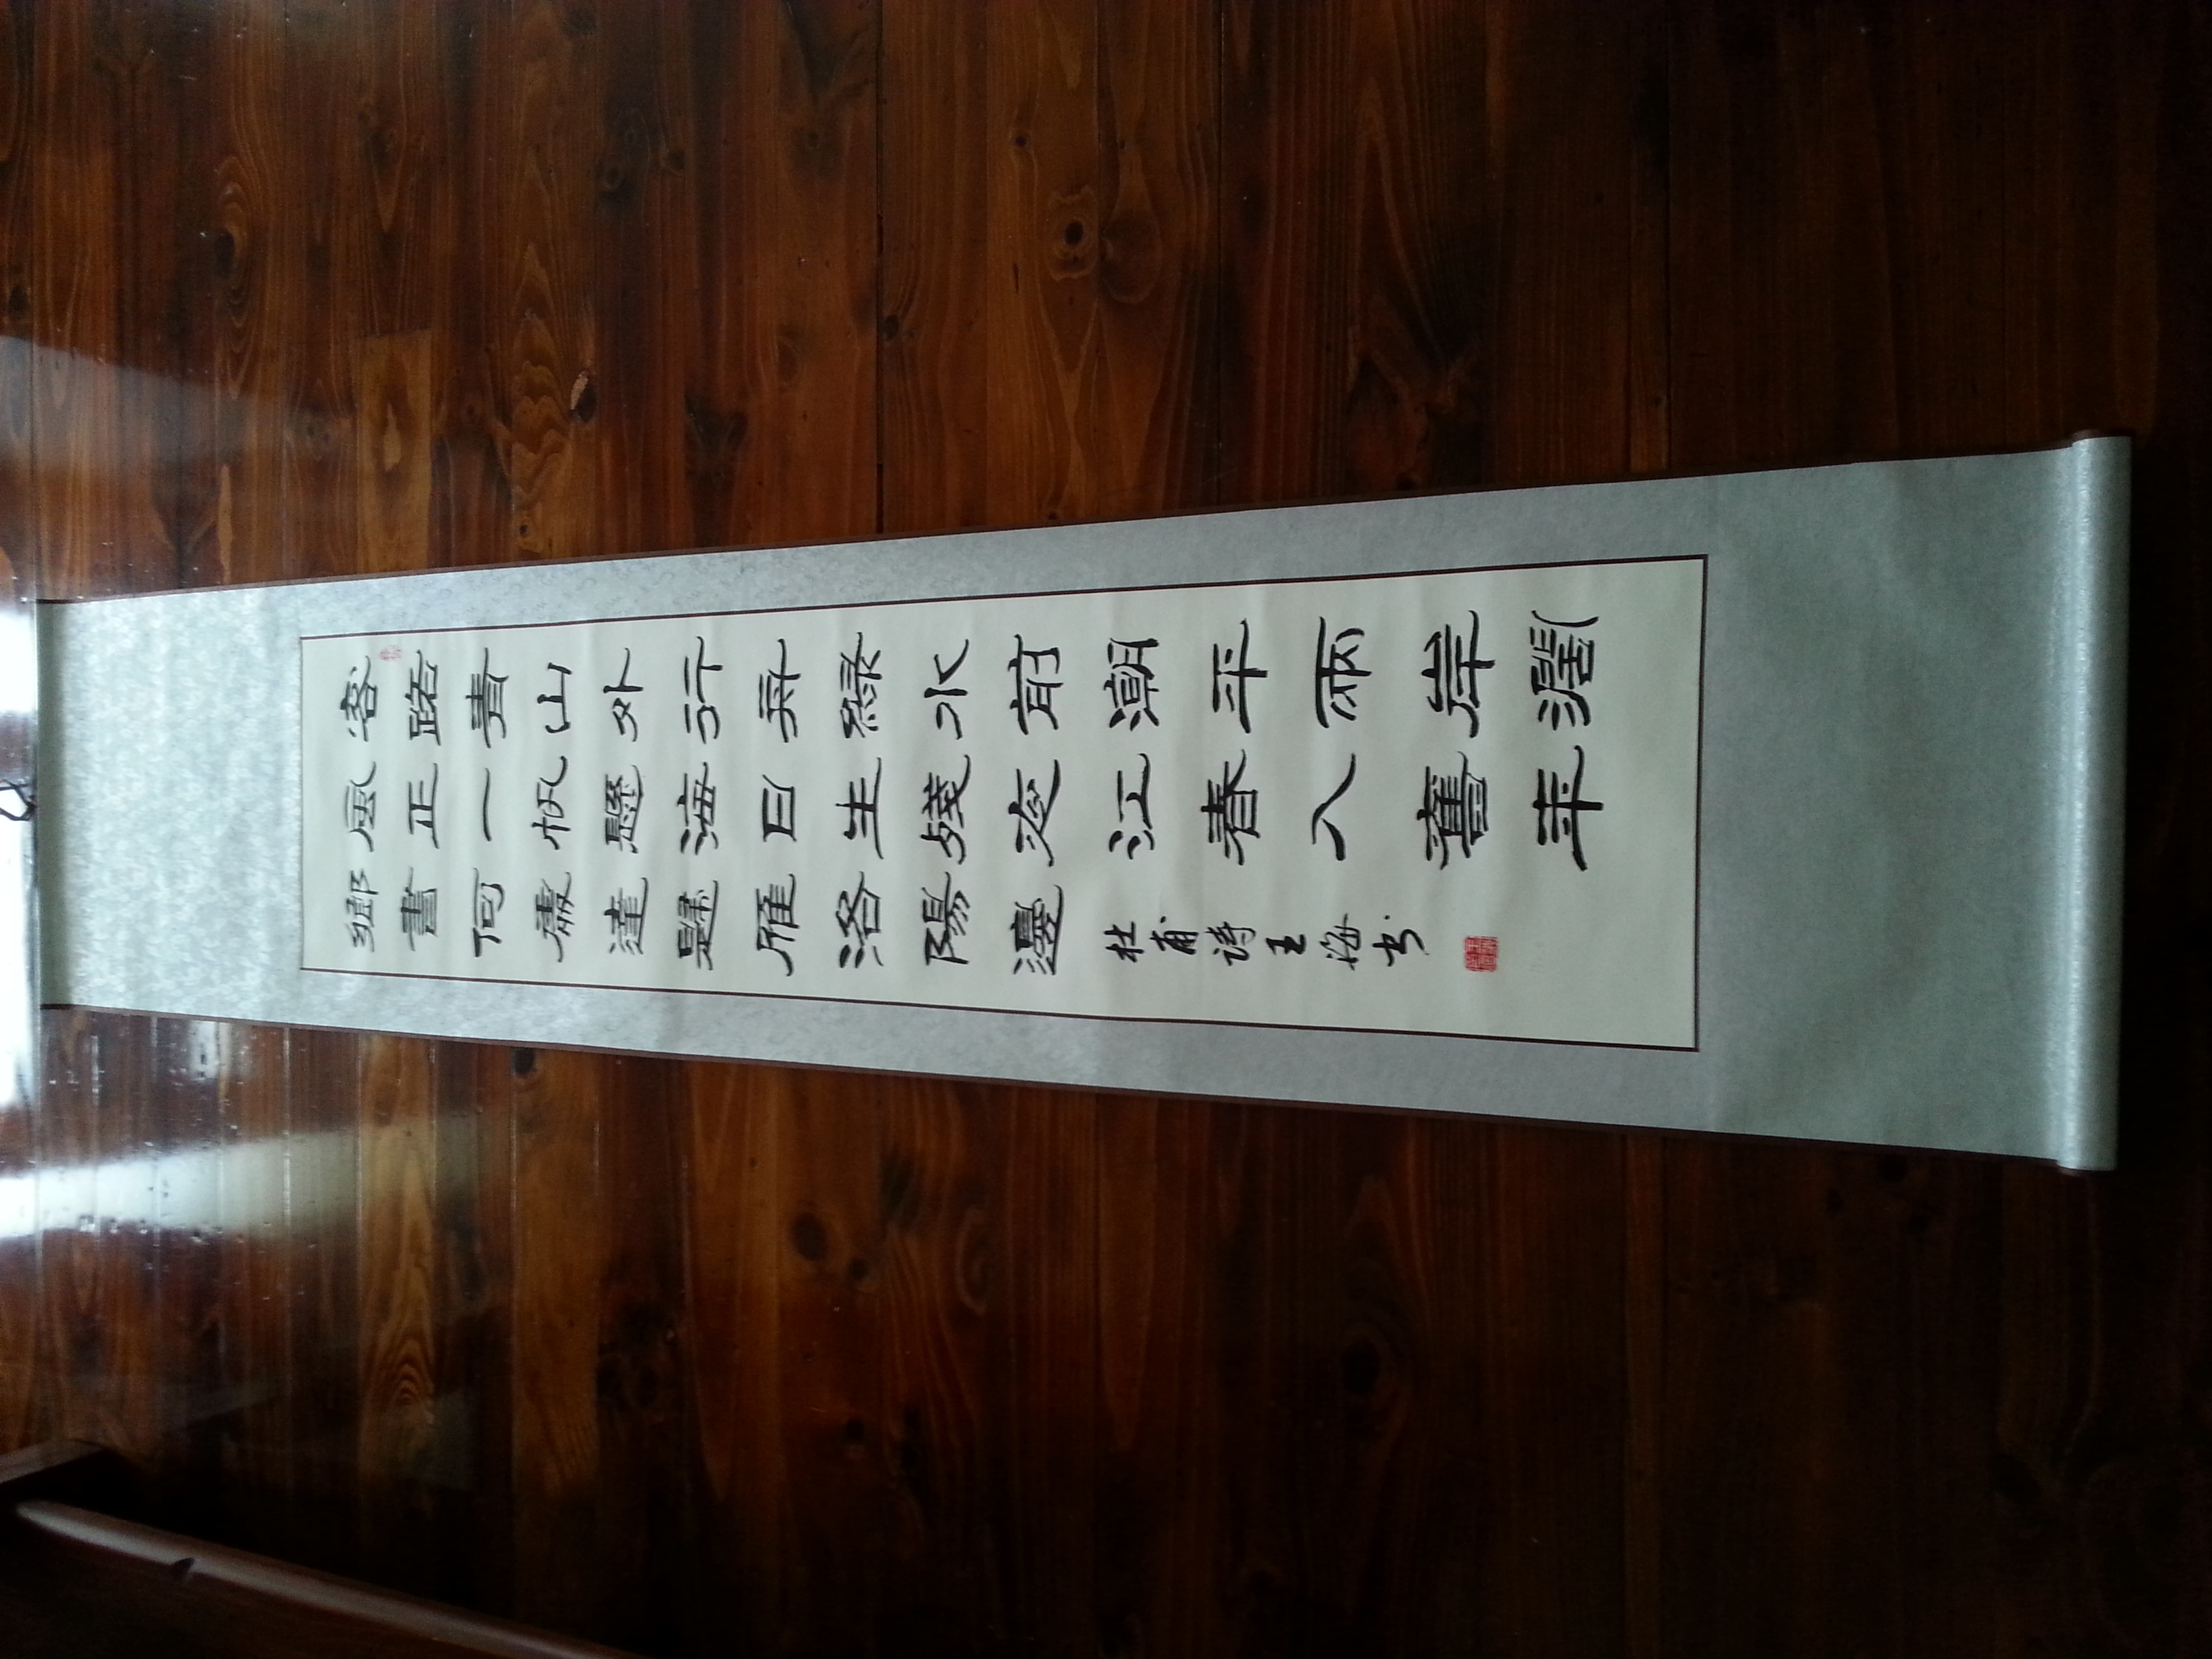 客路青山外行舟綠水前潮平兩岸濶
風正一帆懸海日生殘夜江春入舊年
鄉書何處達歸雁洛陽邊
杜甫诗王海书